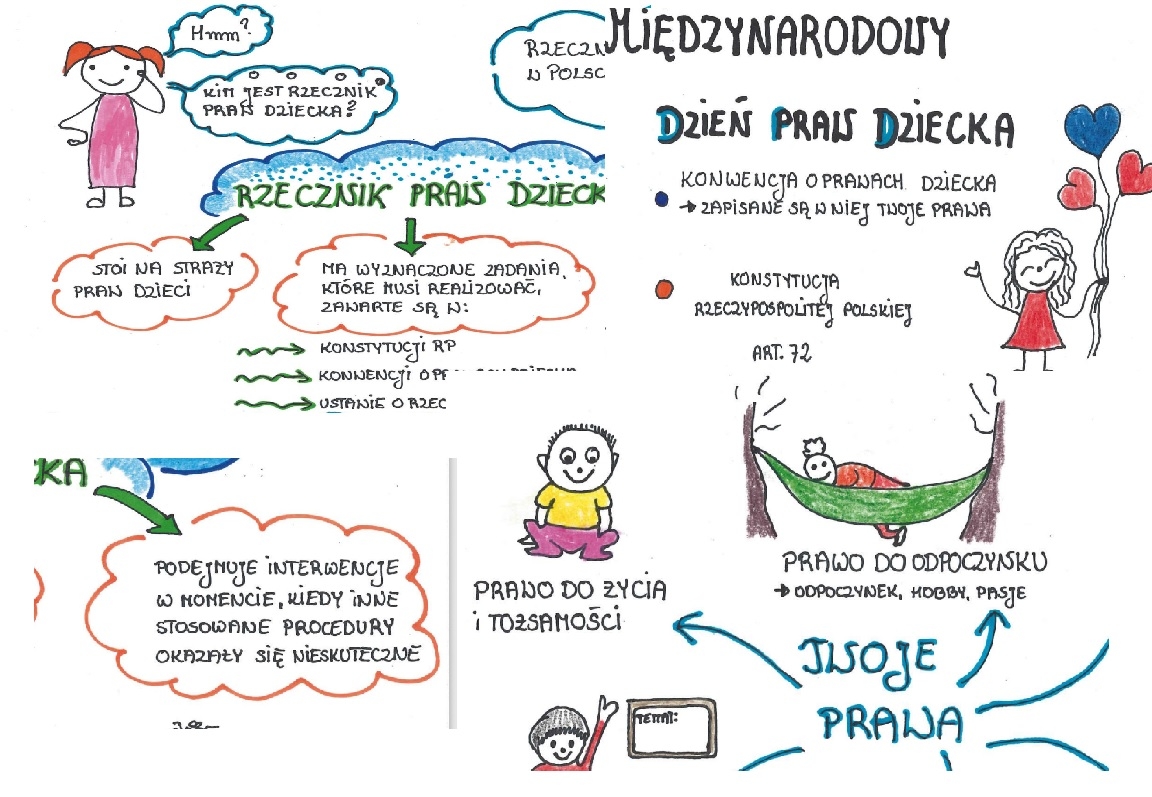 Hmm?
KIM JEST RZECZNIK
PRAW DZIECKA?
RZECZNIK PRAW DZIECK
STOI NA STRAŻY
PRAW DZIECI
MA WYZNACZONE ZADANIA,
KTÓRE MUSI REALIZOWAĆ,
ZAWARTE SĄ W:
KONSTYTUCJI RP
KONWENCJI O
USTAWIE O RZEC
RZECZN
W POLSC
MIĘDZYNARODOWY
DZIEŃ PRAW DZIECKA
KONWENCJA O PRAWACH DZIECKA
→ ZAPISANE SĄ W NIEJ TWOJE PRAWA
KONSTYTUCJA
RZECZYPOSPOLITEJ POLSKIEJ
ART. 72
CKA
PODEJMUJE INTERWENCJE
W MOMENCIE, KIEDY INNE
STOSOWANE PROCEDURY
OKAZAŁY SIĘ NIESKUTECZNE
PRAWO DO ŻYCIA
i TOŻSAMOŚCI
PRAWO DO ODPOCZYNKU
→ ODPOCZYNEK, HOBBY, PASJE
TWOJE
PRAWA
TEMAT: